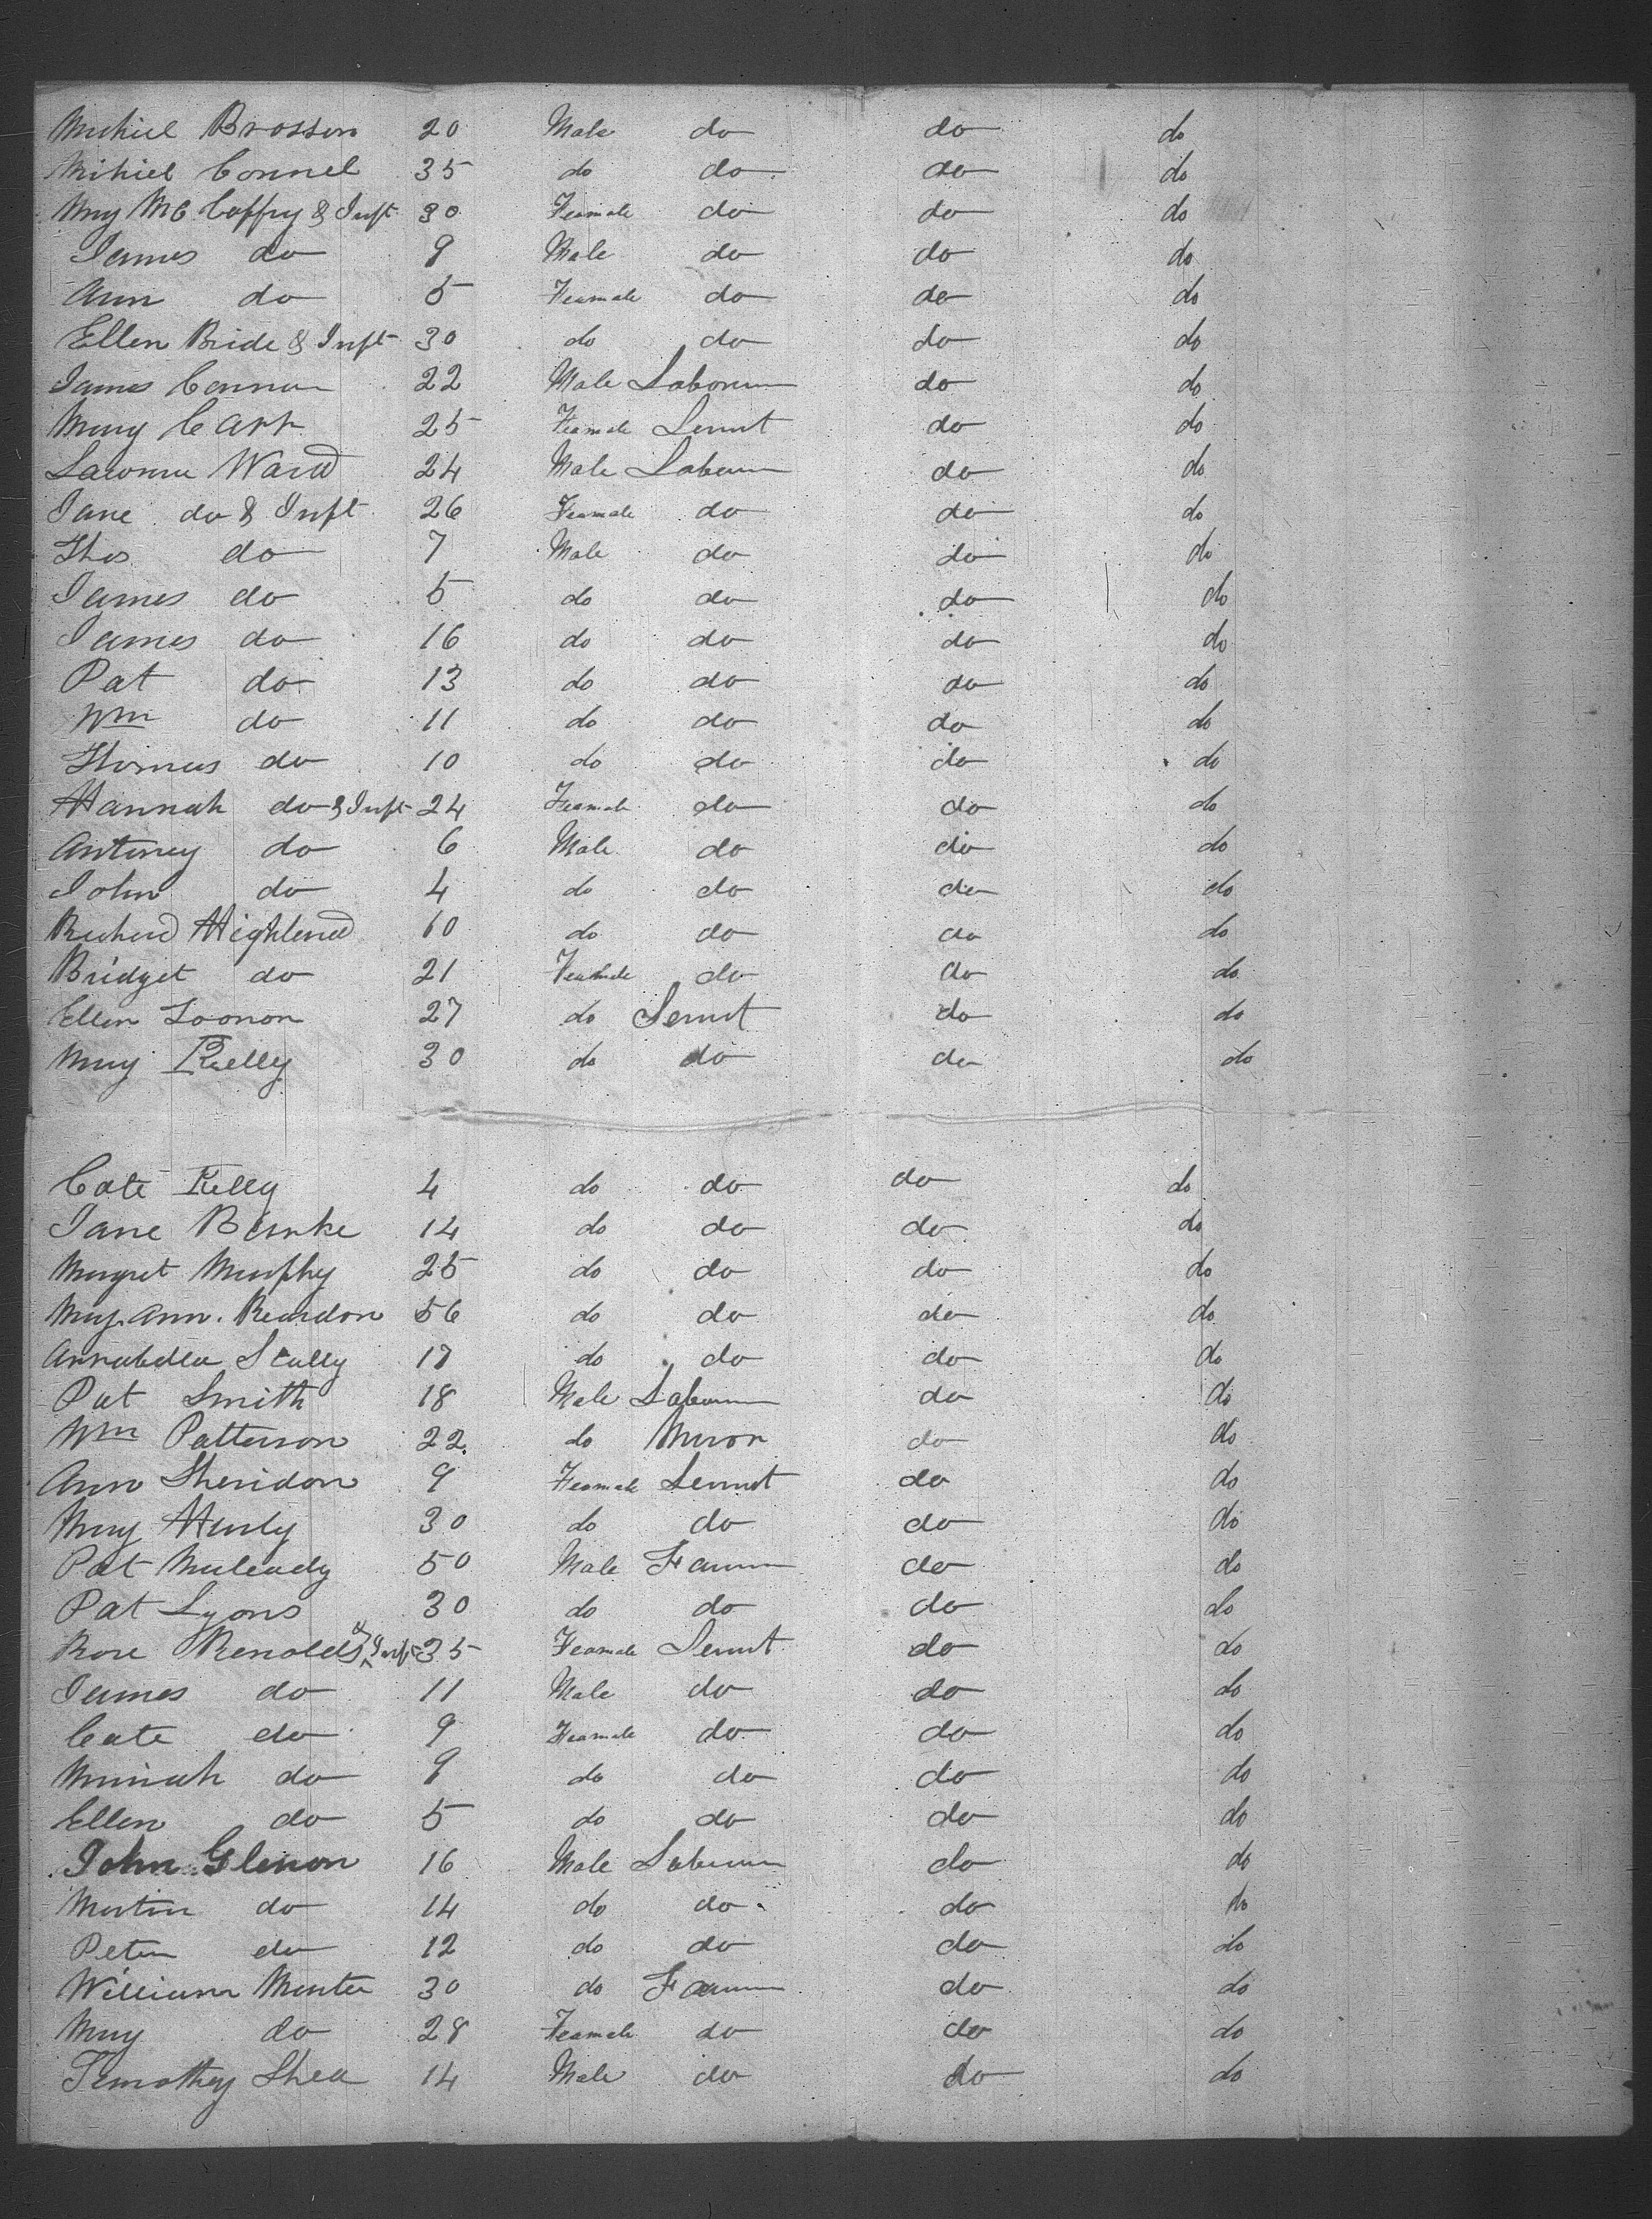 Michiel Brosson 20 Male do do do
Mihiel Connel 35 do do do do
Mary Mc Caffry & Inft 30 Feamale do do do
James do 9 Male do do do
Ann do 5 Feamale do do do
Ellen Bride & Inft 30 do do do do
James Connor 22 Male Laborer do do
Mary Carr 25 Feamale Servnt do do
Lawrence Ward 24 Male Laborer do do
Jane do & Inft 26 Feamale do do do
Thos do 7 Male do do do
James do 5 do do do do
James do 16 do do do do
Pat do 13 do do do do
Wm do 11 do do do do
Thomas do 10 do do do do
Hannah do & Inft 24 Feamale do do do
Antoney do 6 Male do do do
John do 4 do do do do
Richard Highland 60 do do do do
Bridget do 21 Feamale do do do
Ellen Loonon 27 do Servnt do do
Mary Kelly 30 do do do do
Cate Kelly 4 do do do do
Jane Burke 14 do do do do
Margret Murphy 25 do do do do
Mary Ann Reardon 56 do do do do
Annabella Scully 17 do do do do
Pat Smith 18 Male Laborer do do
Wm Patterson 22 do Mason do do
Ann Sheridon 9 Feamale Servnt do do
Mary Hurly 30 do do do do
Pat Muleady 50 Male Farmer do do
Pat Lyons 30 do do do do
Rose Renolds & Inft 35 Feamale Servnt do do
James do 11 Male do do do
Cate do 9 Feamale do do do
do 9 do do do do
Ellen do 5 do do do do
John Glenon 16 Male Laborer do do
Martin do 14 do do do do
Peter do 12 do do do do
William Minter 30 do Farmer do do
Mary do 28 Feamale do do do
Timothey Shea 14 Male do do do